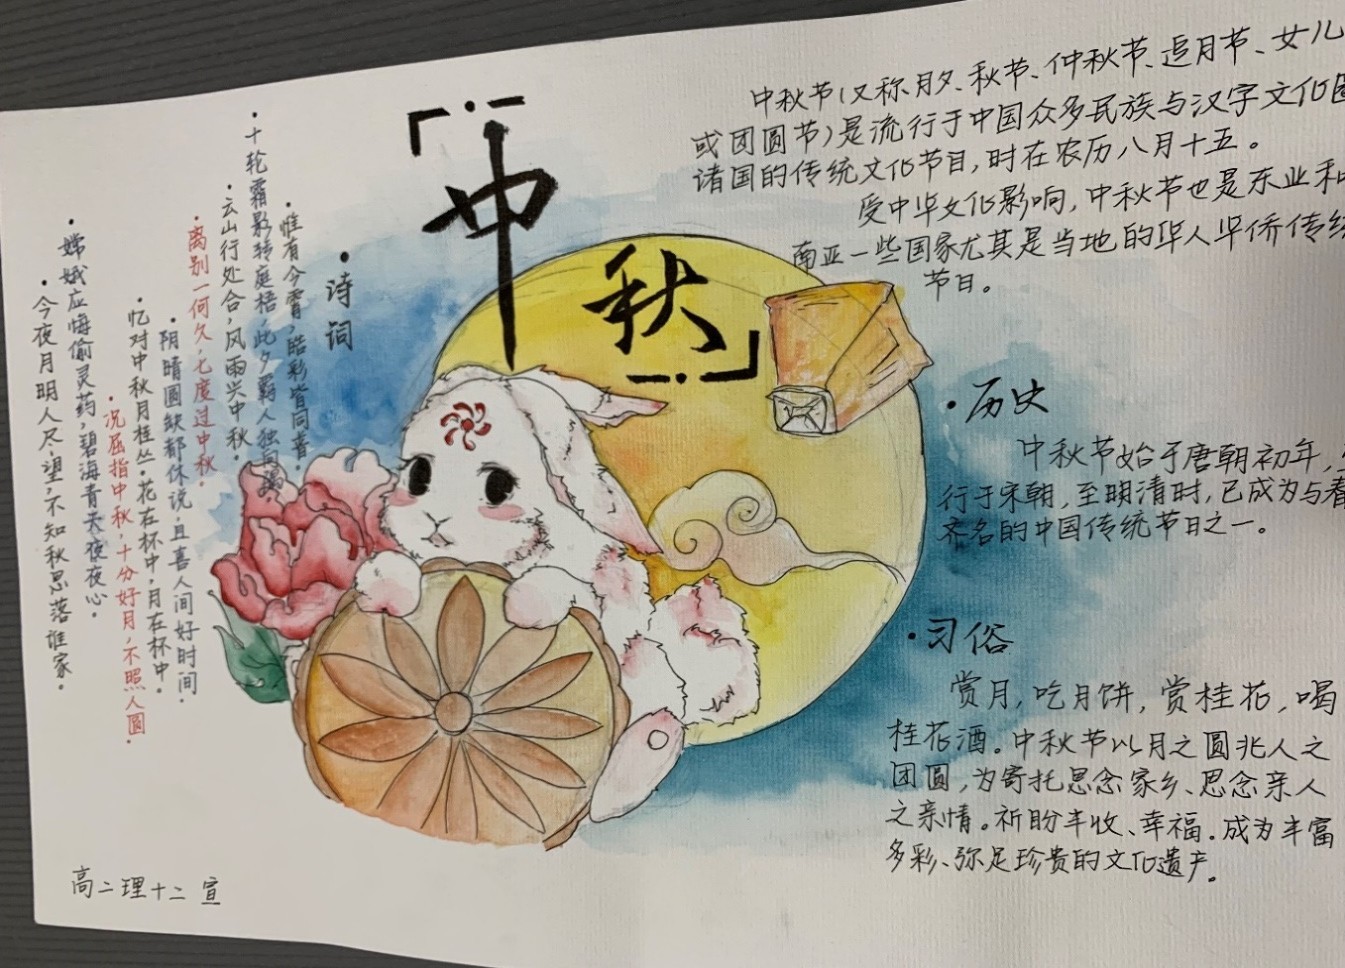 「中秋」
中秋节(又称月夕、秋节、仲秋节、追月节、女儿
或团圆节)是流行于中国众多民族与汉字文化圈
诸国的传统文化节目,时在农历八月十五。
受中华文化影响,中秋节也是东业和
南亚一些国家尤其是当地的华人华侨传统
节日。
·历史
中秋节始于唐朝初年,
行于宋朝,至明清时,已成为与春
齐名的中国传统节日之一。
·习俗
赏月,吃月饼,赏桂花,喝
桂花酒。中秋节以月之圆兆人之
团圆,为寄托思念家乡、思念亲人
之亲情。祈盼丰收、幸福.成为丰富
多彩、弥足珍贵的文化遗产。
·诗词
·惟有今宵,皓彩皆同普。
·十轮霜影转庭梧,此夕羁人独向隅。
·云山行处合,风雨兴中秋。
·离别一何久,七度过中秋。
·阴晴圆缺都休说,且喜人间好时间
·忆对中秋月桂丛。花在杯中,月在杯中。
·况屈指中秋,十分好月,不照人圆
·嫦娥应悔偷灵药,碧海青天夜夜心。
·今夜月明人尽望,不知秋思落谁家。
高二理十二 宣